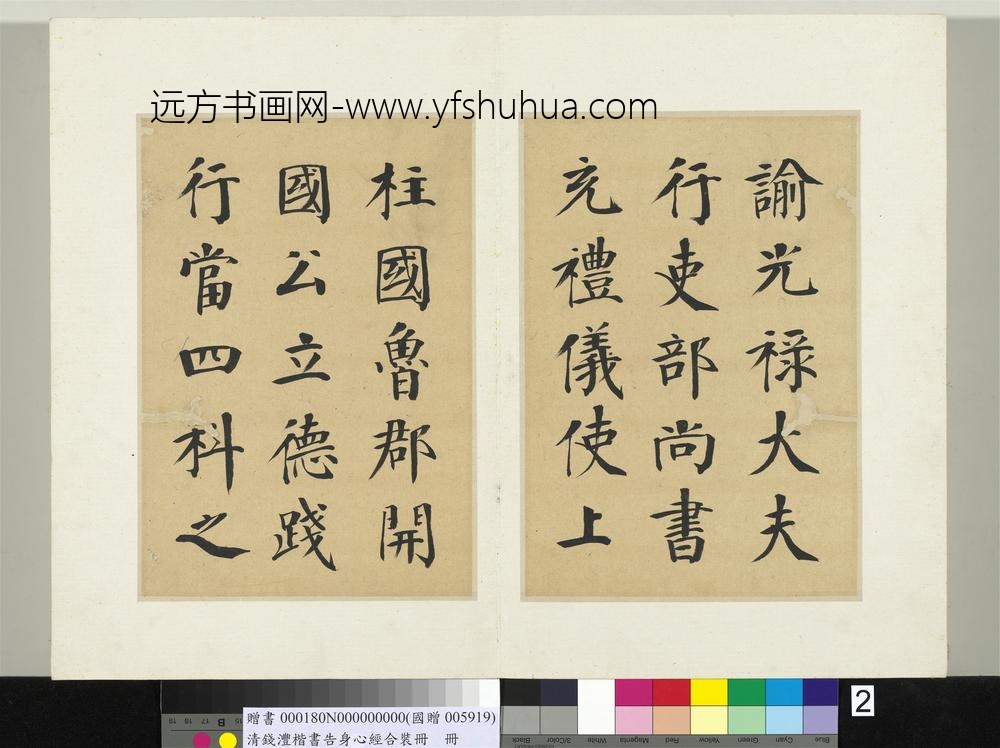 远方书画网-www.yfshuhua.com
諭光祿大夫
行吏部尚書
充禮儀使上
柱國魯郡開
國公立德踐
行當四科之
2
贈書 000180N000000000(國贈 005919)
清錢澧楷書告身心經合裝冊 冊
19 18 17 B 15
Black 3/Color White Magenta Red Yellow Green Cyan Blue